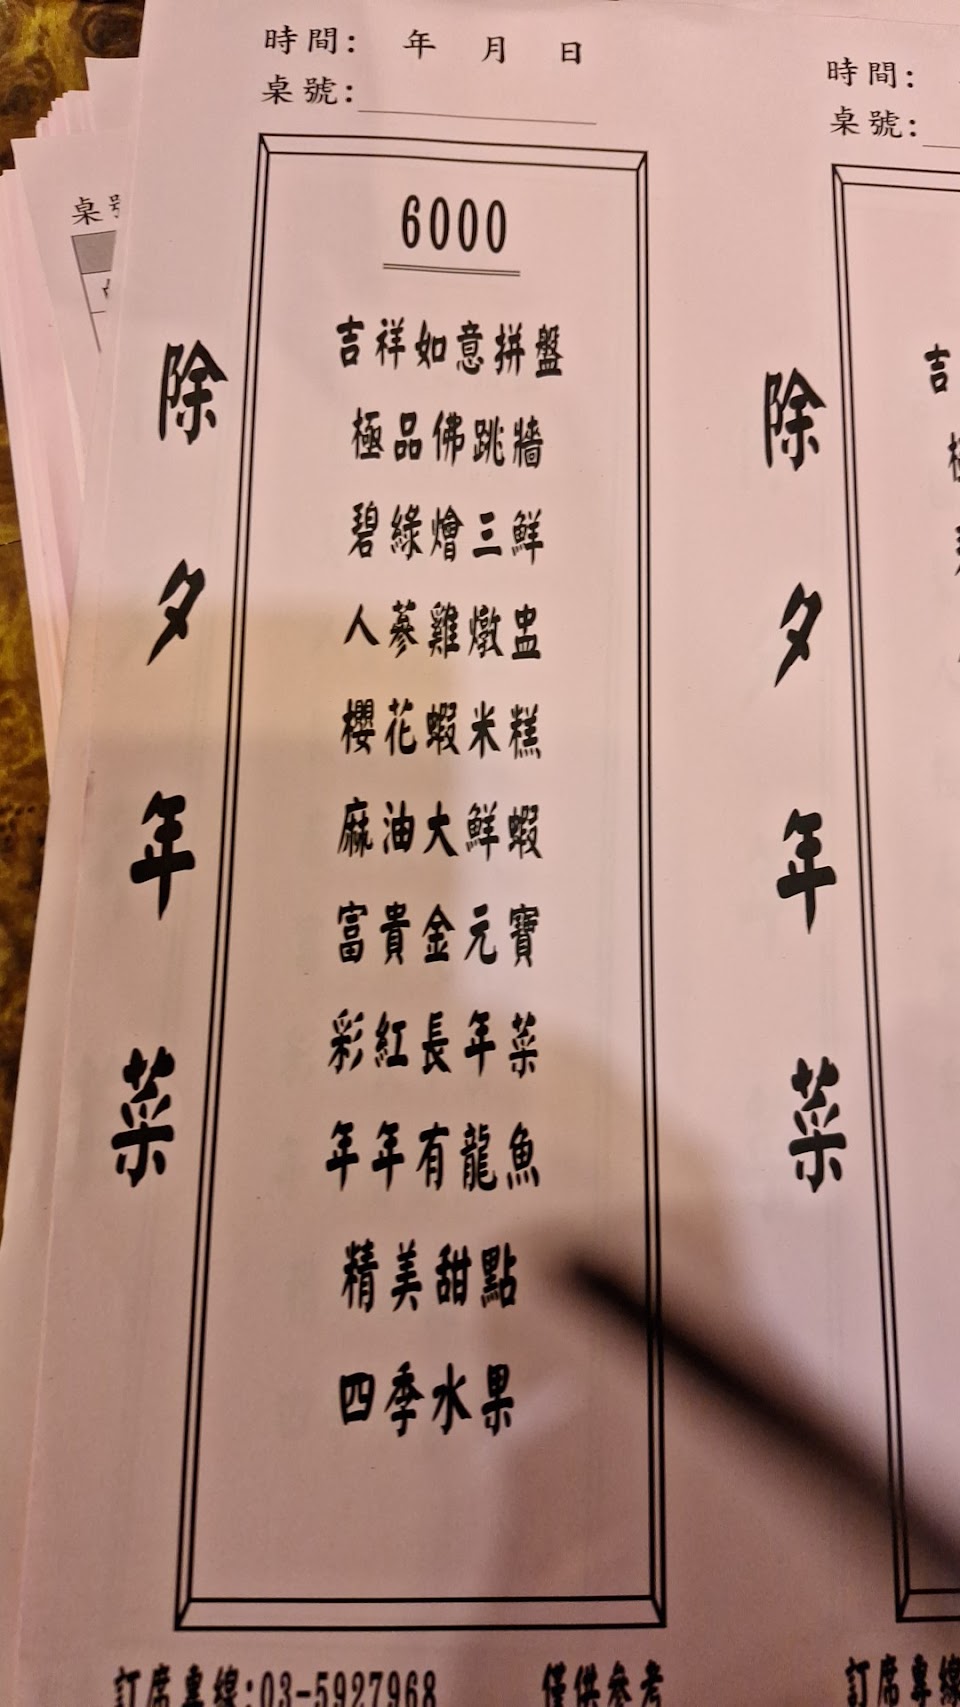 時間: 年 月 日
桌號:
6000
除夕年菜
吉祥如意拼盤
極品佛跳牆
碧綠燴三鮮
人蔘雞燉盅
櫻花蝦米糕
麻油大鮮蝦
富貴金元寶
彩紅長年菜
年年有龍魚
精美甜點
四季水果
訂席專線:03-5927968 僅供參考
時間:
桌號:
除夕年菜
吉
訂席專線
桌號